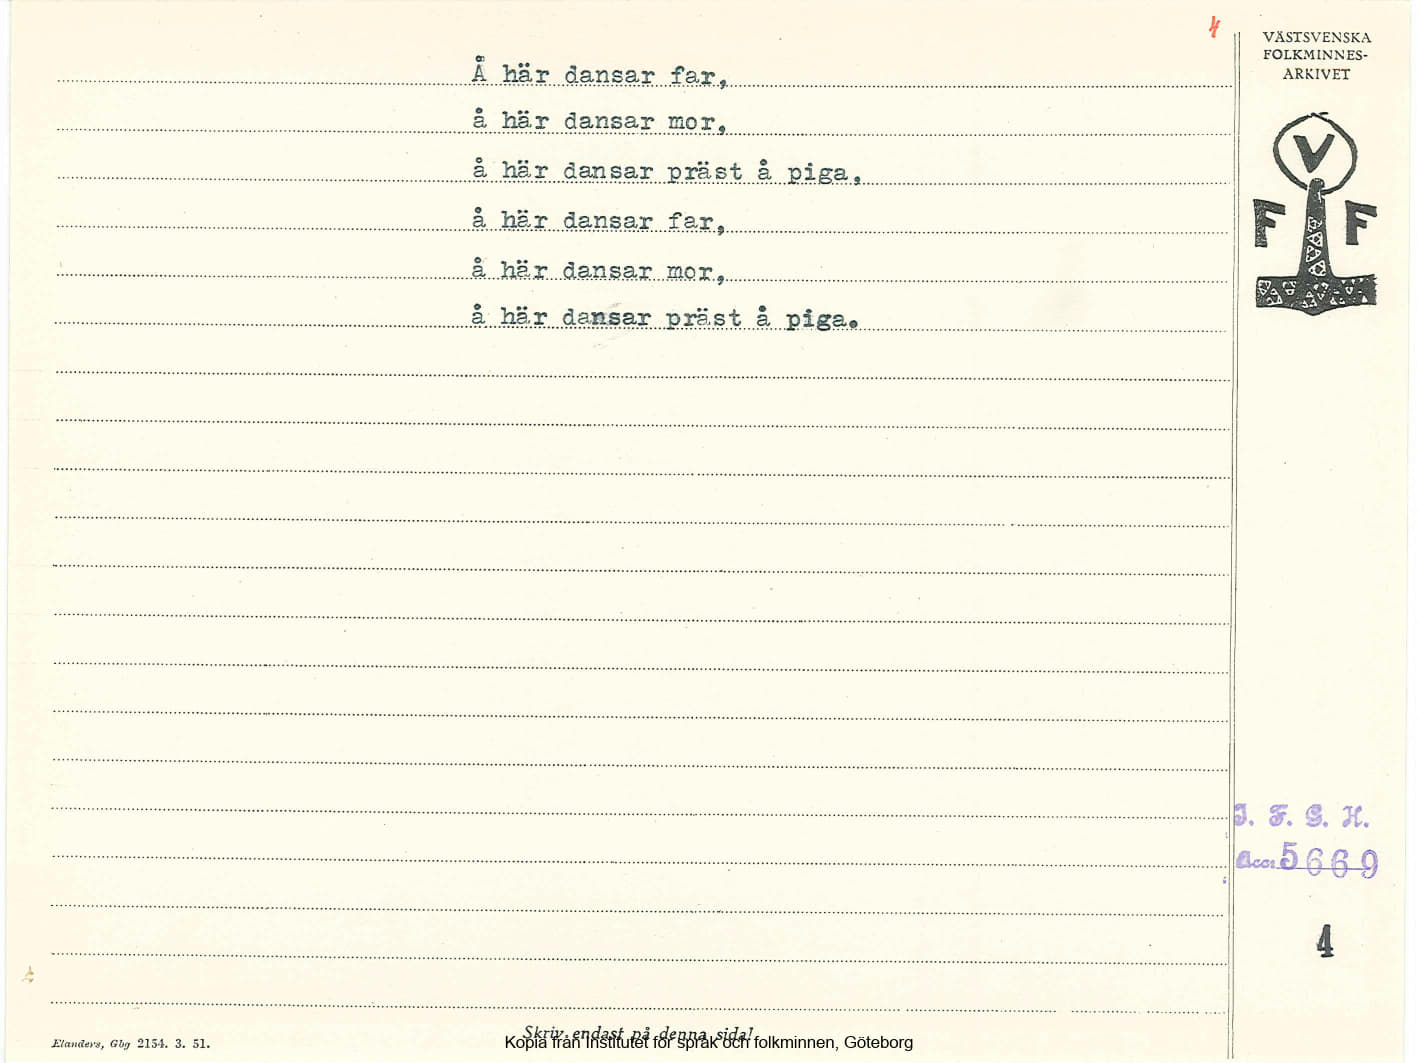 4
VÄSTSVENSKA
FOLKMINNES-
ARKIVET
Å här dansar far,
å här dansar mor,
å här dansar präst å piga,
å här dansar far,
å här dansar mor,
å här dansar präst å piga.
V
F F
I. F. G. H.
Acc: 5669
4
Skriv endast på denna sida!
Elanders, Gbg 2154. 3. 51.
Kopia från Institutet för språk och folkminnen, Göteborg